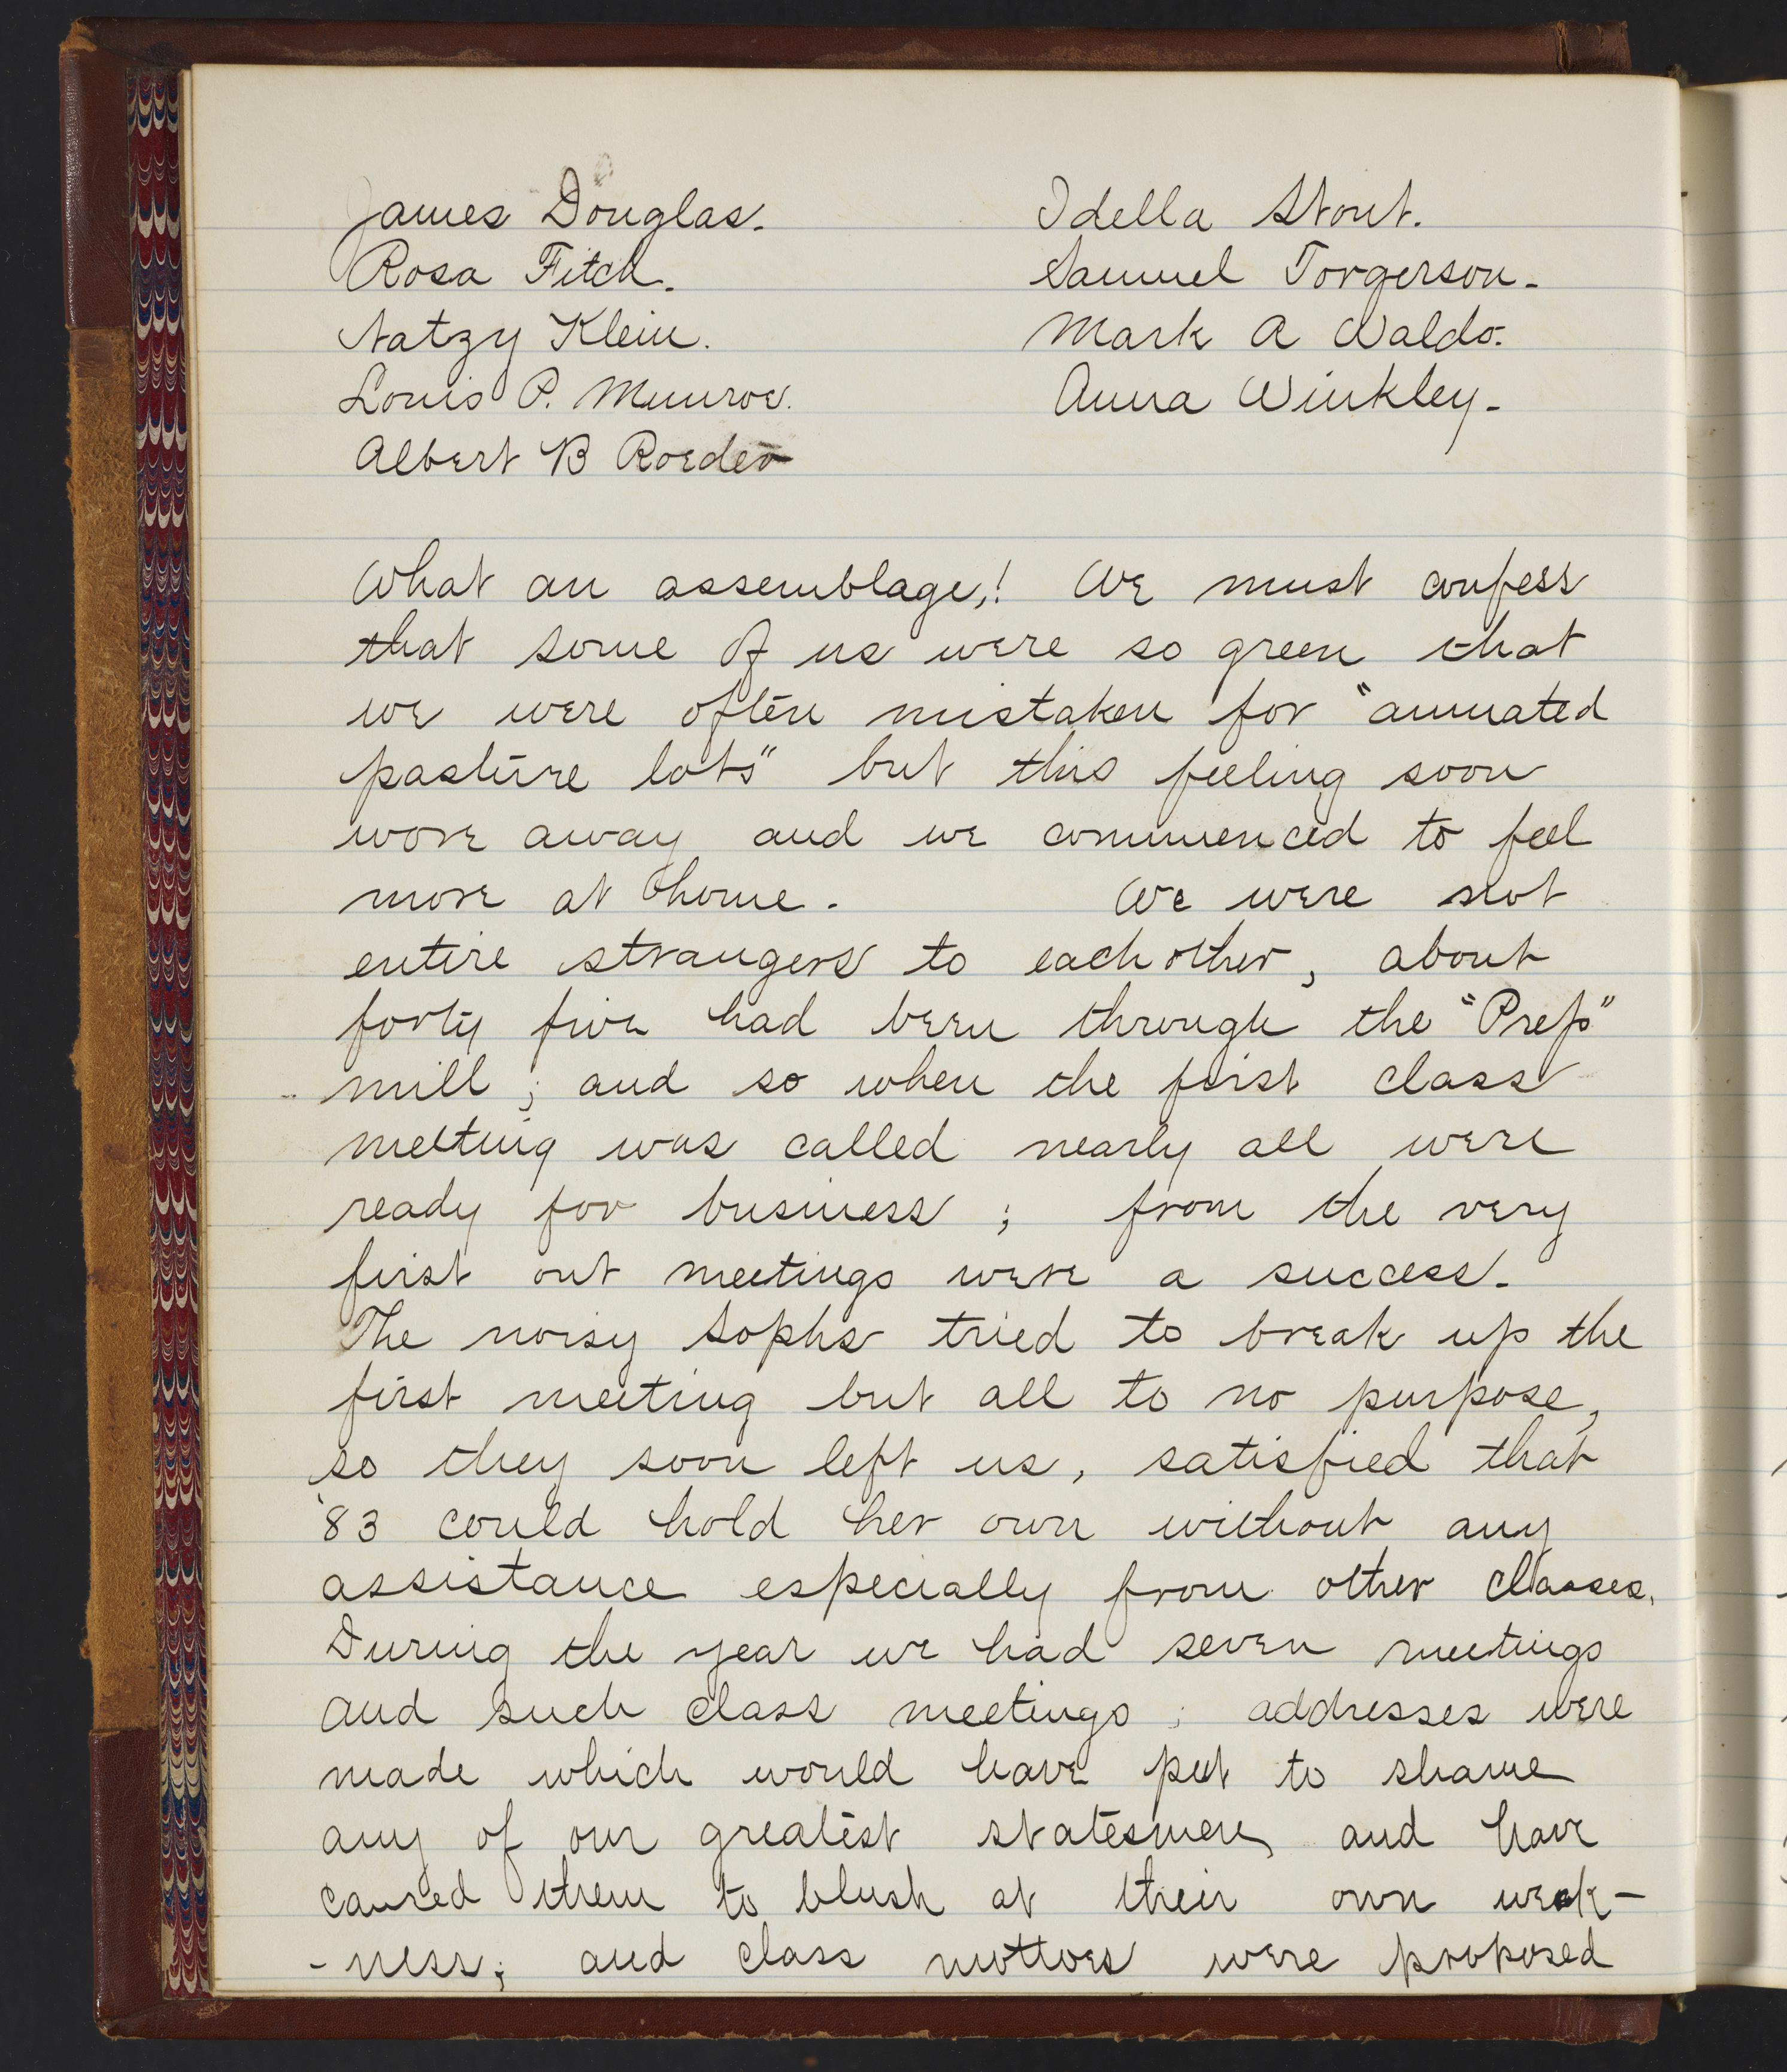 James Douglas.
Rosa Fitch.
Natzy Klein.
Louis P. Munroe.
Albert B Roeder
Idella Stout.
Samuel Torgerson.
Mark A Waldo.
Anna Winkley.
What an assemblage,! We must confess
that some of us were so green that
we were often mistaken for "anmated
pasture lots" but this feeling soon
wore away and we commenced to feel
more at home. We were not
entire strangers to each other, about
forty five had been through the "Prep"
mill ; and so when the first class
meeting was called nearly all were
ready for business ; from the very
first out meetings were a success.
The noisy Sophs tried to break up the
first meeting but all to no purpose,
so they soon left us, satisfied that
'83 could hold her own without any
assistance especially from other classes.
During the year we had seven meetings
and such class meetings ; addresses were
made which would have put to shame
any of our greatest statesmen, and have
caused them to blush at their own weak-
-ness; and class mottoes were proposed